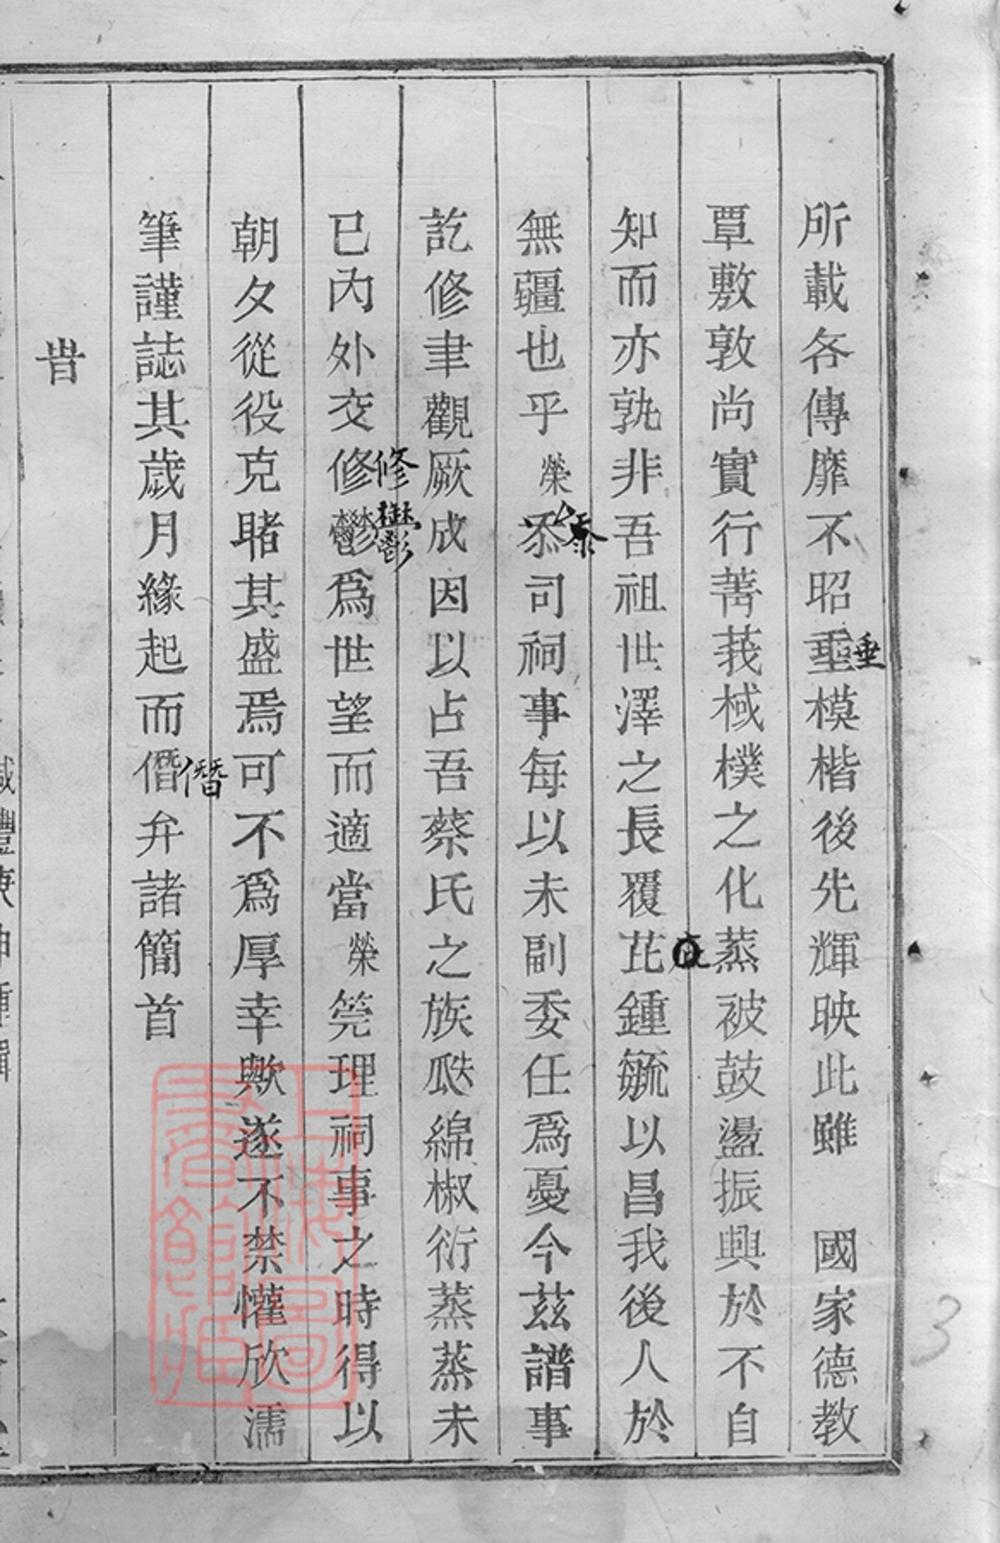 所載各傳靡不昭垂模楷後先輝映此雖 國家德教
垂
覃敷敦尚實行菁莪棫樸之化蒸被鼓盪振興於不自
知而亦孰非吾祖世澤之長覆芘鍾毓以昌我後人於
無疆也乎榮忝司祠事每以未副委任爲憂今茲譜事
忝
訖修聿觀厥成因以占吾蔡氏之族瓞綿椒衍蒸蒸未
已內外交修鬱爲世望而適當榮筦理祠事之時得以
修鬱
朝夕從役克睹其盛焉可不爲厚幸歟遂不禁懽欣濡
筆謹誌其歲月緣起而僭弁諸簡首
僭
旹
3